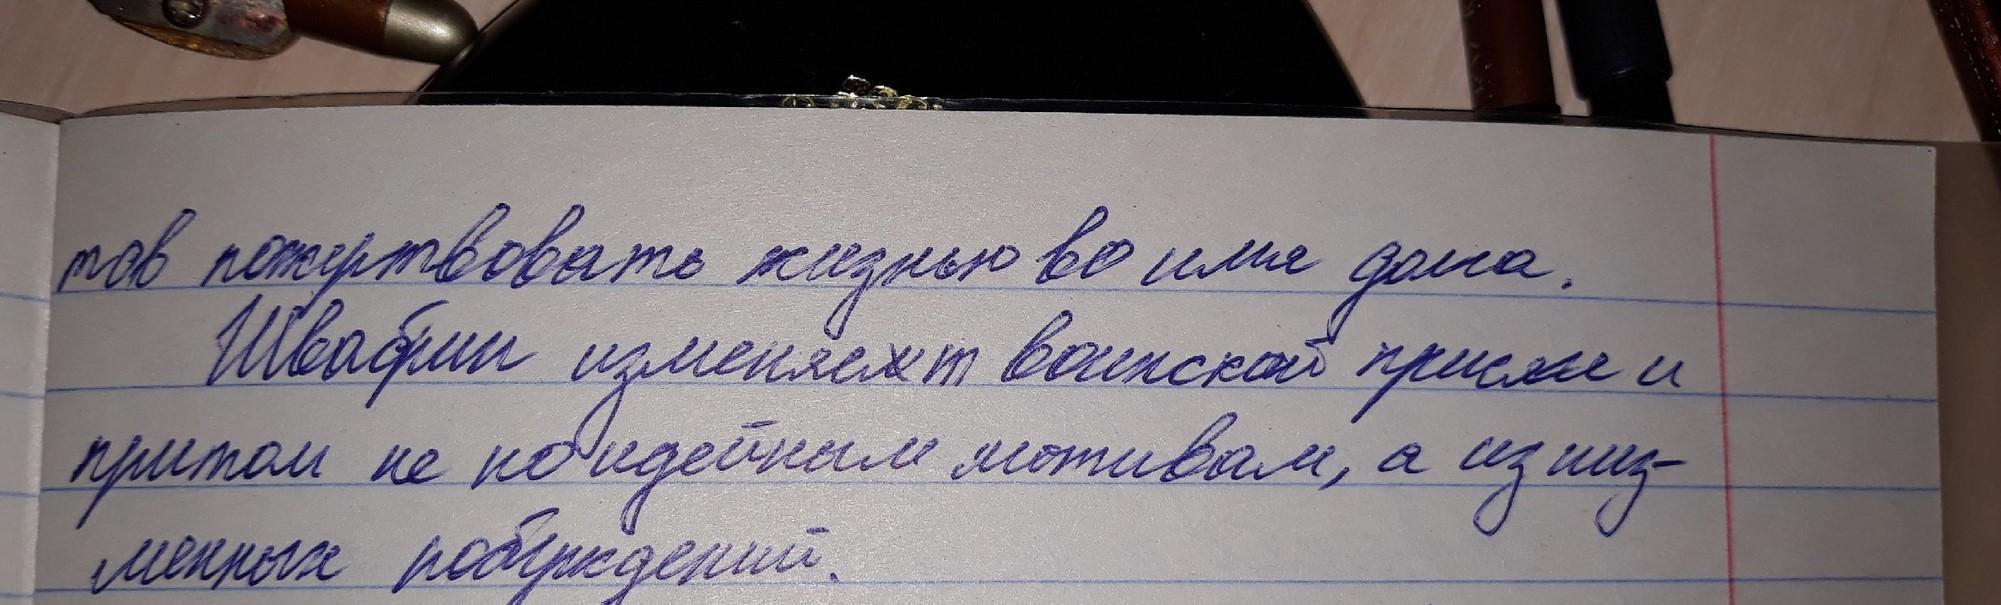 тов пожертвовать жизнью во имя долга.
Швабрин изменяет воинской присяге и
притом не по идейным мотивам, а из низ-
менных побуждений.